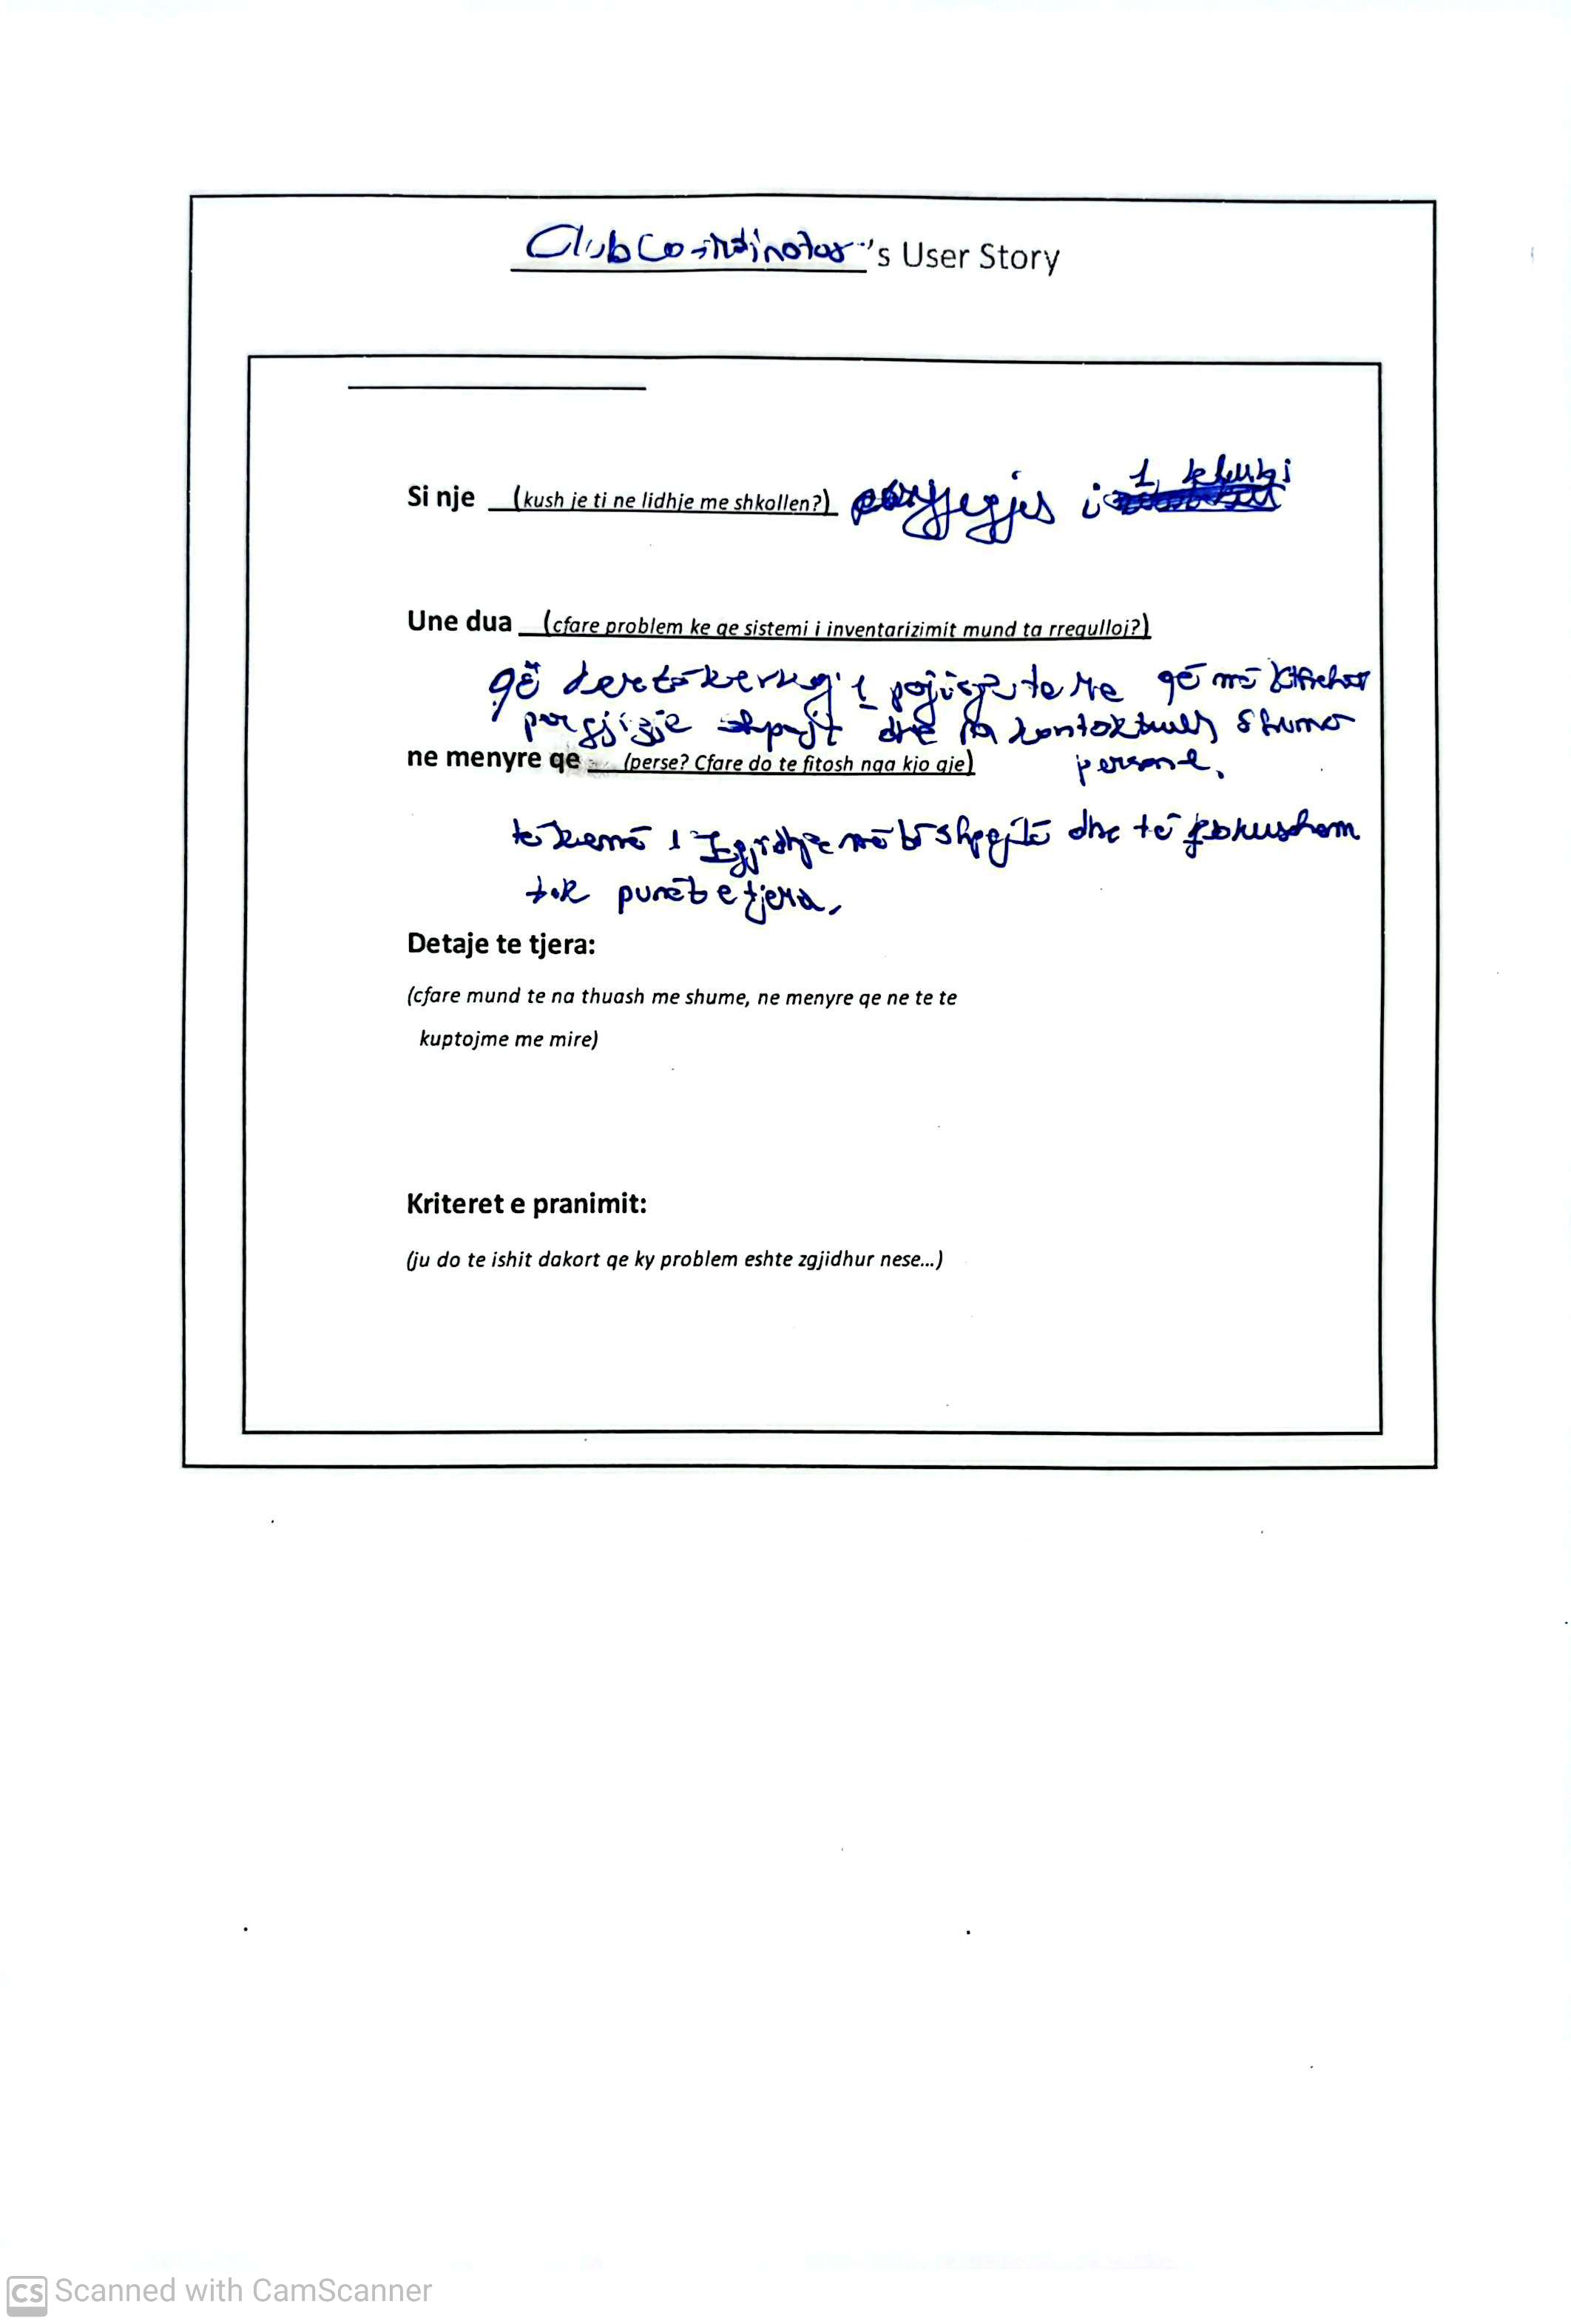 Club Coordinator's User Story
Si nje (kush je ti ne lidhje me shkollen?) përgjegjes i 1 klubi
Une dua (cfare problem ke qe sistemi i inventarizimit mund ta rregulloj?)
që kerkoj 1 pajisje te re që më kthehet
pergjigje shpejt dhe pa kontaktuar shume
persona.
ne menyre qe (perse? Cfare do te fitosh nga kjo gje)
të kemë 1 zgjidhje më të shpejtë dhe të fokushem
tek punët e tjera.
Detaje te tjera:
(cfare mund te na thuash me shume, ne menyre qe ne te te
kuptojme me mire)
Kriteret e pranimit:
(ju do te ishit dakort qe ky problem eshte zgjidhur nese...)
CS Scanned with CamScanner